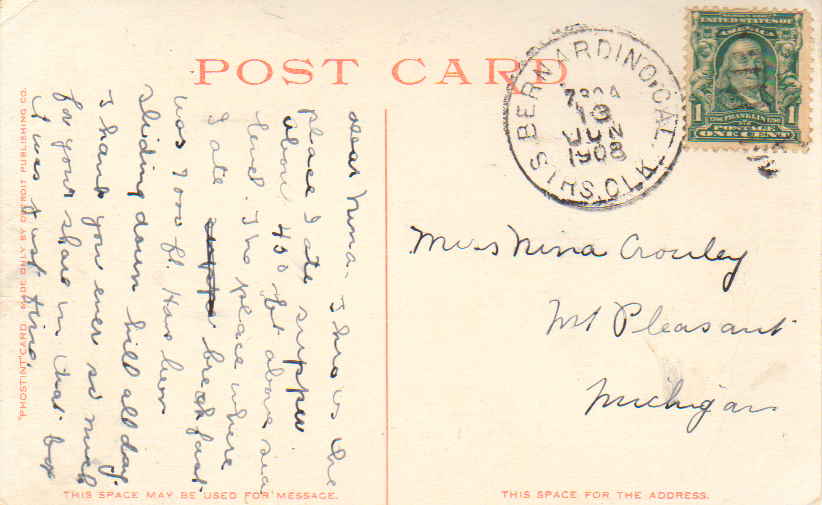 POST CARD
Dear Nina - This is the
place I ate supper
about 450 ft above sea
level. The place where
I ate breakfast
was 7000 ft. Has been
Sliding down hill all day.
Thank you ever so much
for your share in that box
it was just fine.
"PHOSTINT" CARD. MADE ONLY BY DETROIT PUBLISHING CO.
THIS SPACE MAY BE USED FOR MESSAGE.
BERNARDINO, CAL.
19
JUN
1908
UNITED STATES OF
AMERICA
1 FRANKLIN 1
POSTAGE
ONE CENT
Miss Nina Crowley
Mt Pleasant
Michigan
THIS SPACE FOR THE ADDRESS.